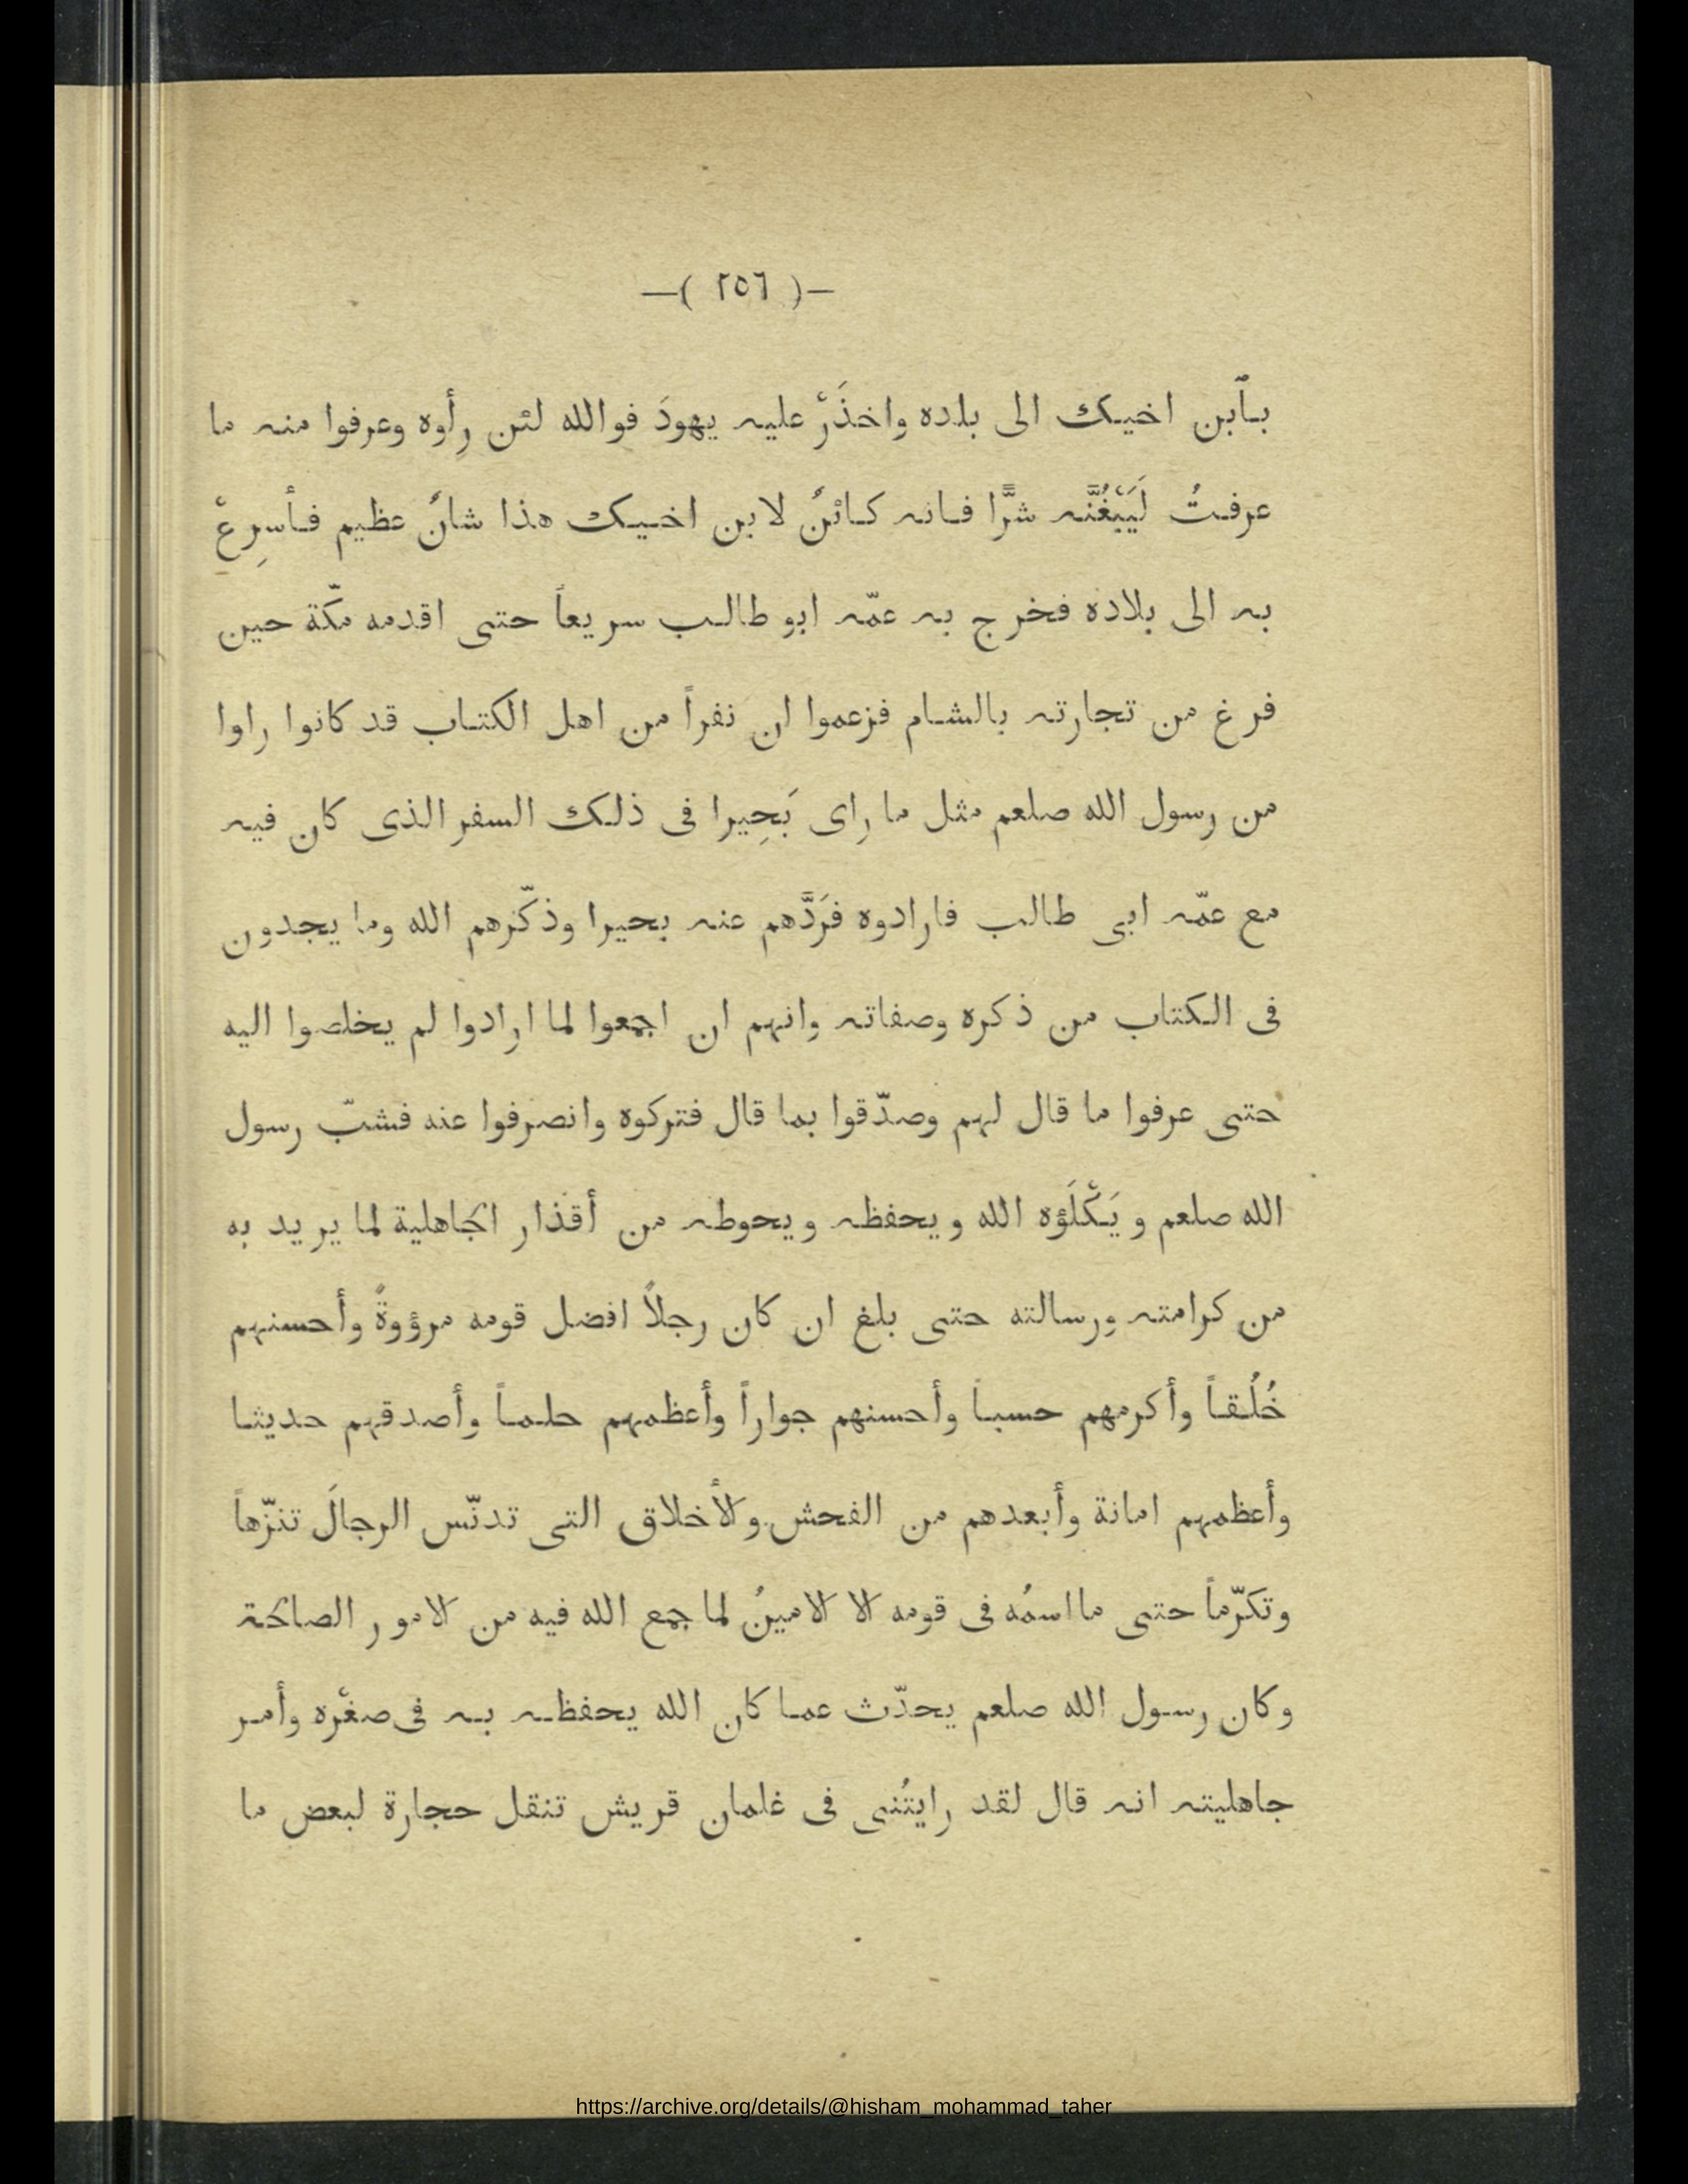 —( ٢٥٦ )—
بٱبن اخيك الى بلده واخذَرْ عليه يهودَ فوالله لئن رِأوه وعرفوا منه ما
عرفتُ لَيَبْغُنَّه شرًّا فانه كائنٌ لابن اخيك هذا شانٌ عظيم فأسرِعْ
به الى بلاده فخرج به عمّه ابو طالب سريعاً حتى اقدمه مكّة حين
فرغ من تجارته بالشام فزعموا ان نفراً من اهل الكتاب قد كانوا راوا
من رسول الله صلعم مثل ما راى بَحِيرا فى ذلك السفر الذى كان فيه
مع عمّه ابى طالب فارادوه فرَدَّهم عنه بحيرا وذكّرهم الله وما يجدون
فى الكتاب من ذكره وصفاته وانهم ان اجمعوا لما ارادوا لم يخلصوا اليه
حتى عرفوا ما قال لهم وصدّقوا بما قال فتركوه وانصرفوا عنه فشبّ رسول
الله صلعم ويَكْلَؤه الله ويحفظه ويحوطه من أقذار الجاهلية لما يريد به
من كرامته ورسالته حتى بلغ ان كان رجلاً افضل قومه مرؤوةً وأحسنهم
خُلُقاً وأكرمهم حسباً وأحسنهم جواراً وأعظمهم حلماً وأصدقهم حديثا
وأعظمهم امانة وأبعدهم من الفحش والأخلاق التى تدنّس الرجالَ تنزّهاً
وتكرّماً حتى ما اسمُه فى قومه الا الامينُ لما جمع الله فيه من الامور الصالحة
وكان رسول الله صلعم يحدّث عما كان الله يحفظه به فى صغْره وأمر
جاهليته انه قال لقد رايتُنى فى غلمان قريش تنقل حجارة لبعض ما
https://archive.org/details/@hisham_mohammad_taher